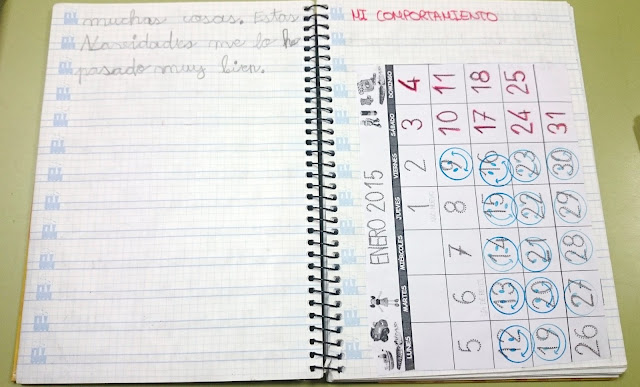 muchas cosas. Estas
Navidades me lo he
pasado muy bien.
MI COMPORTAMIENTO
ENERO 2015
LUNES MARTES MIÉRCOLES JUEVES VIERNES SÁBADO DOMINGO
1 2 3 4
5 6 7 8 9 10 11
12 13 14 15 16 17 18
19 20 21 22 23 24 25
26 27 28 29 30 31